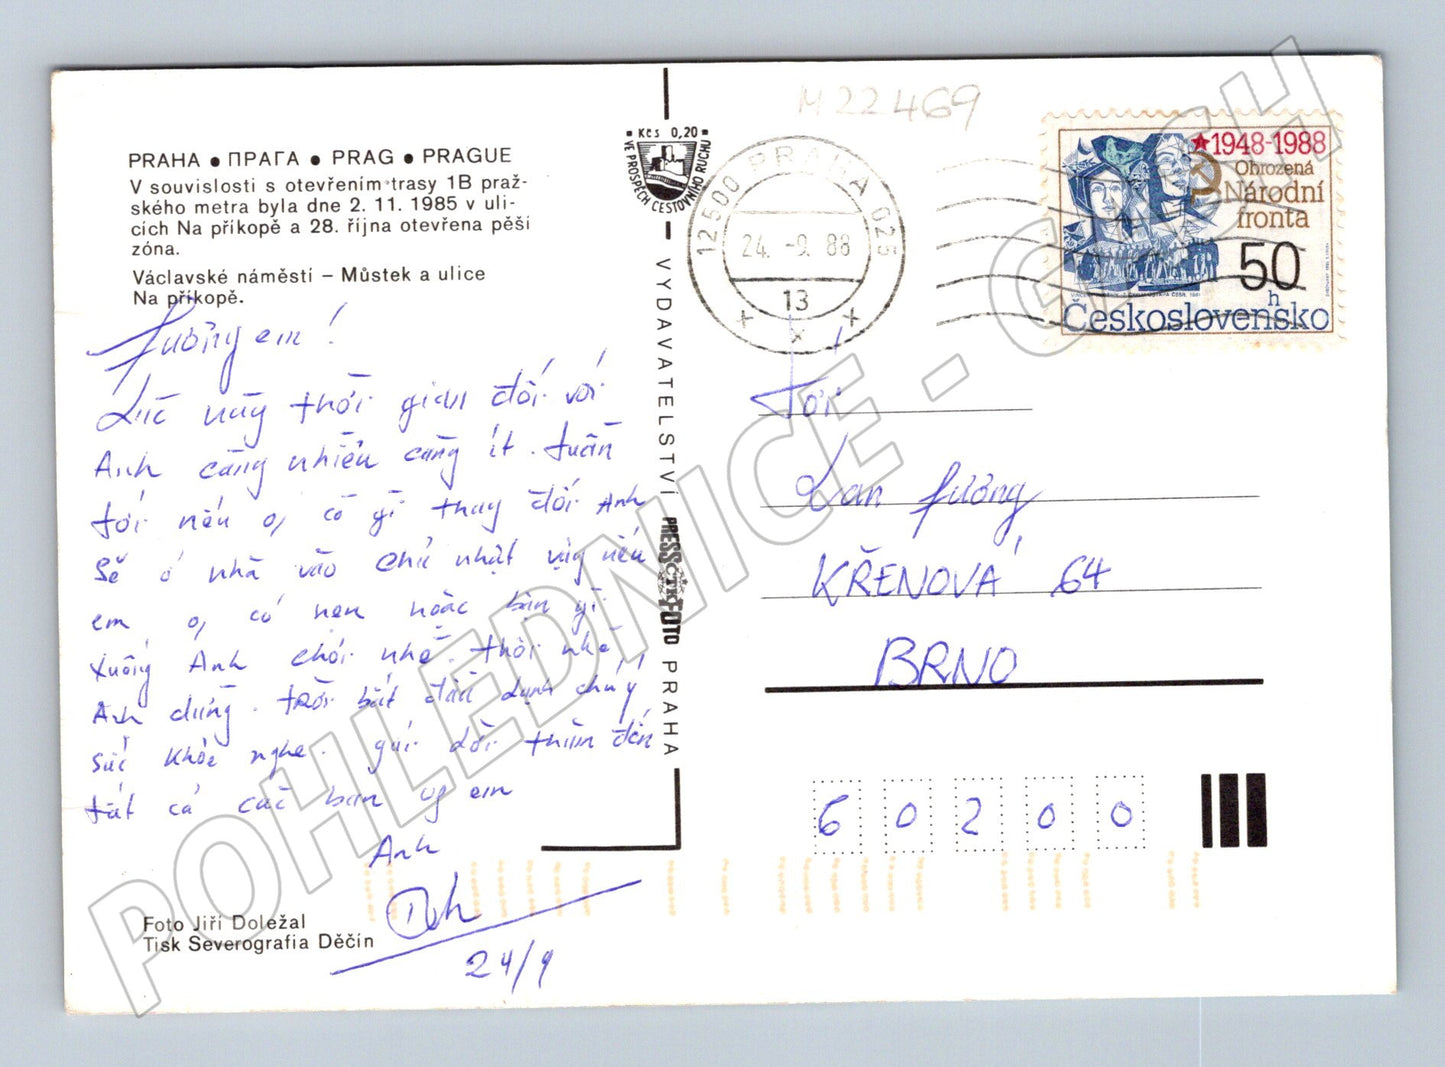 PRAHA • ПРАГА • PRAG • PRAGUE
V souvislosti s otevřením trasy 1B praž-
ského metra byla dne 2. 11. 1985 v uli-
cích Na příkopě a 28. října otevřena pěší
zóna.
Václavské náměstí – Můstek a ulice
Na příkopě.
Hường em!
Lúc này thời gian đối với
Anh càng nhiều càng ít. tuần
tới nếu o, có gì thay đổi Anh
Sẽ ở nhà vào chủ nhật vậy nếu
em o, có hẹn hoặc bận gì
xuống Anh chơi nhé. thôi nhé
Anh dừng. trời bắt đầu lạnh chú ý
sức khỏe nghe. gửi lời thăm đến
tất cả các bạn ug em
Anh
24/9
Foto Jiří Doležal
Tisk Severografia Děčín
Kčs 0,20
VE PROSPĚCH CESTOVNÍHO RUCHU
VYDAVATELSTVÍ PRESSFOTO PRAHA
ČTK
M 22 469
12500 PRAHA 025
24. -9. 88
13
1948-1988
Ohrozená
Národní
fronta
50
h
Československo
Tới
Lan Hường
KŘENOVÁ 64
BRNO
60200
POHLEDNICE - CZ